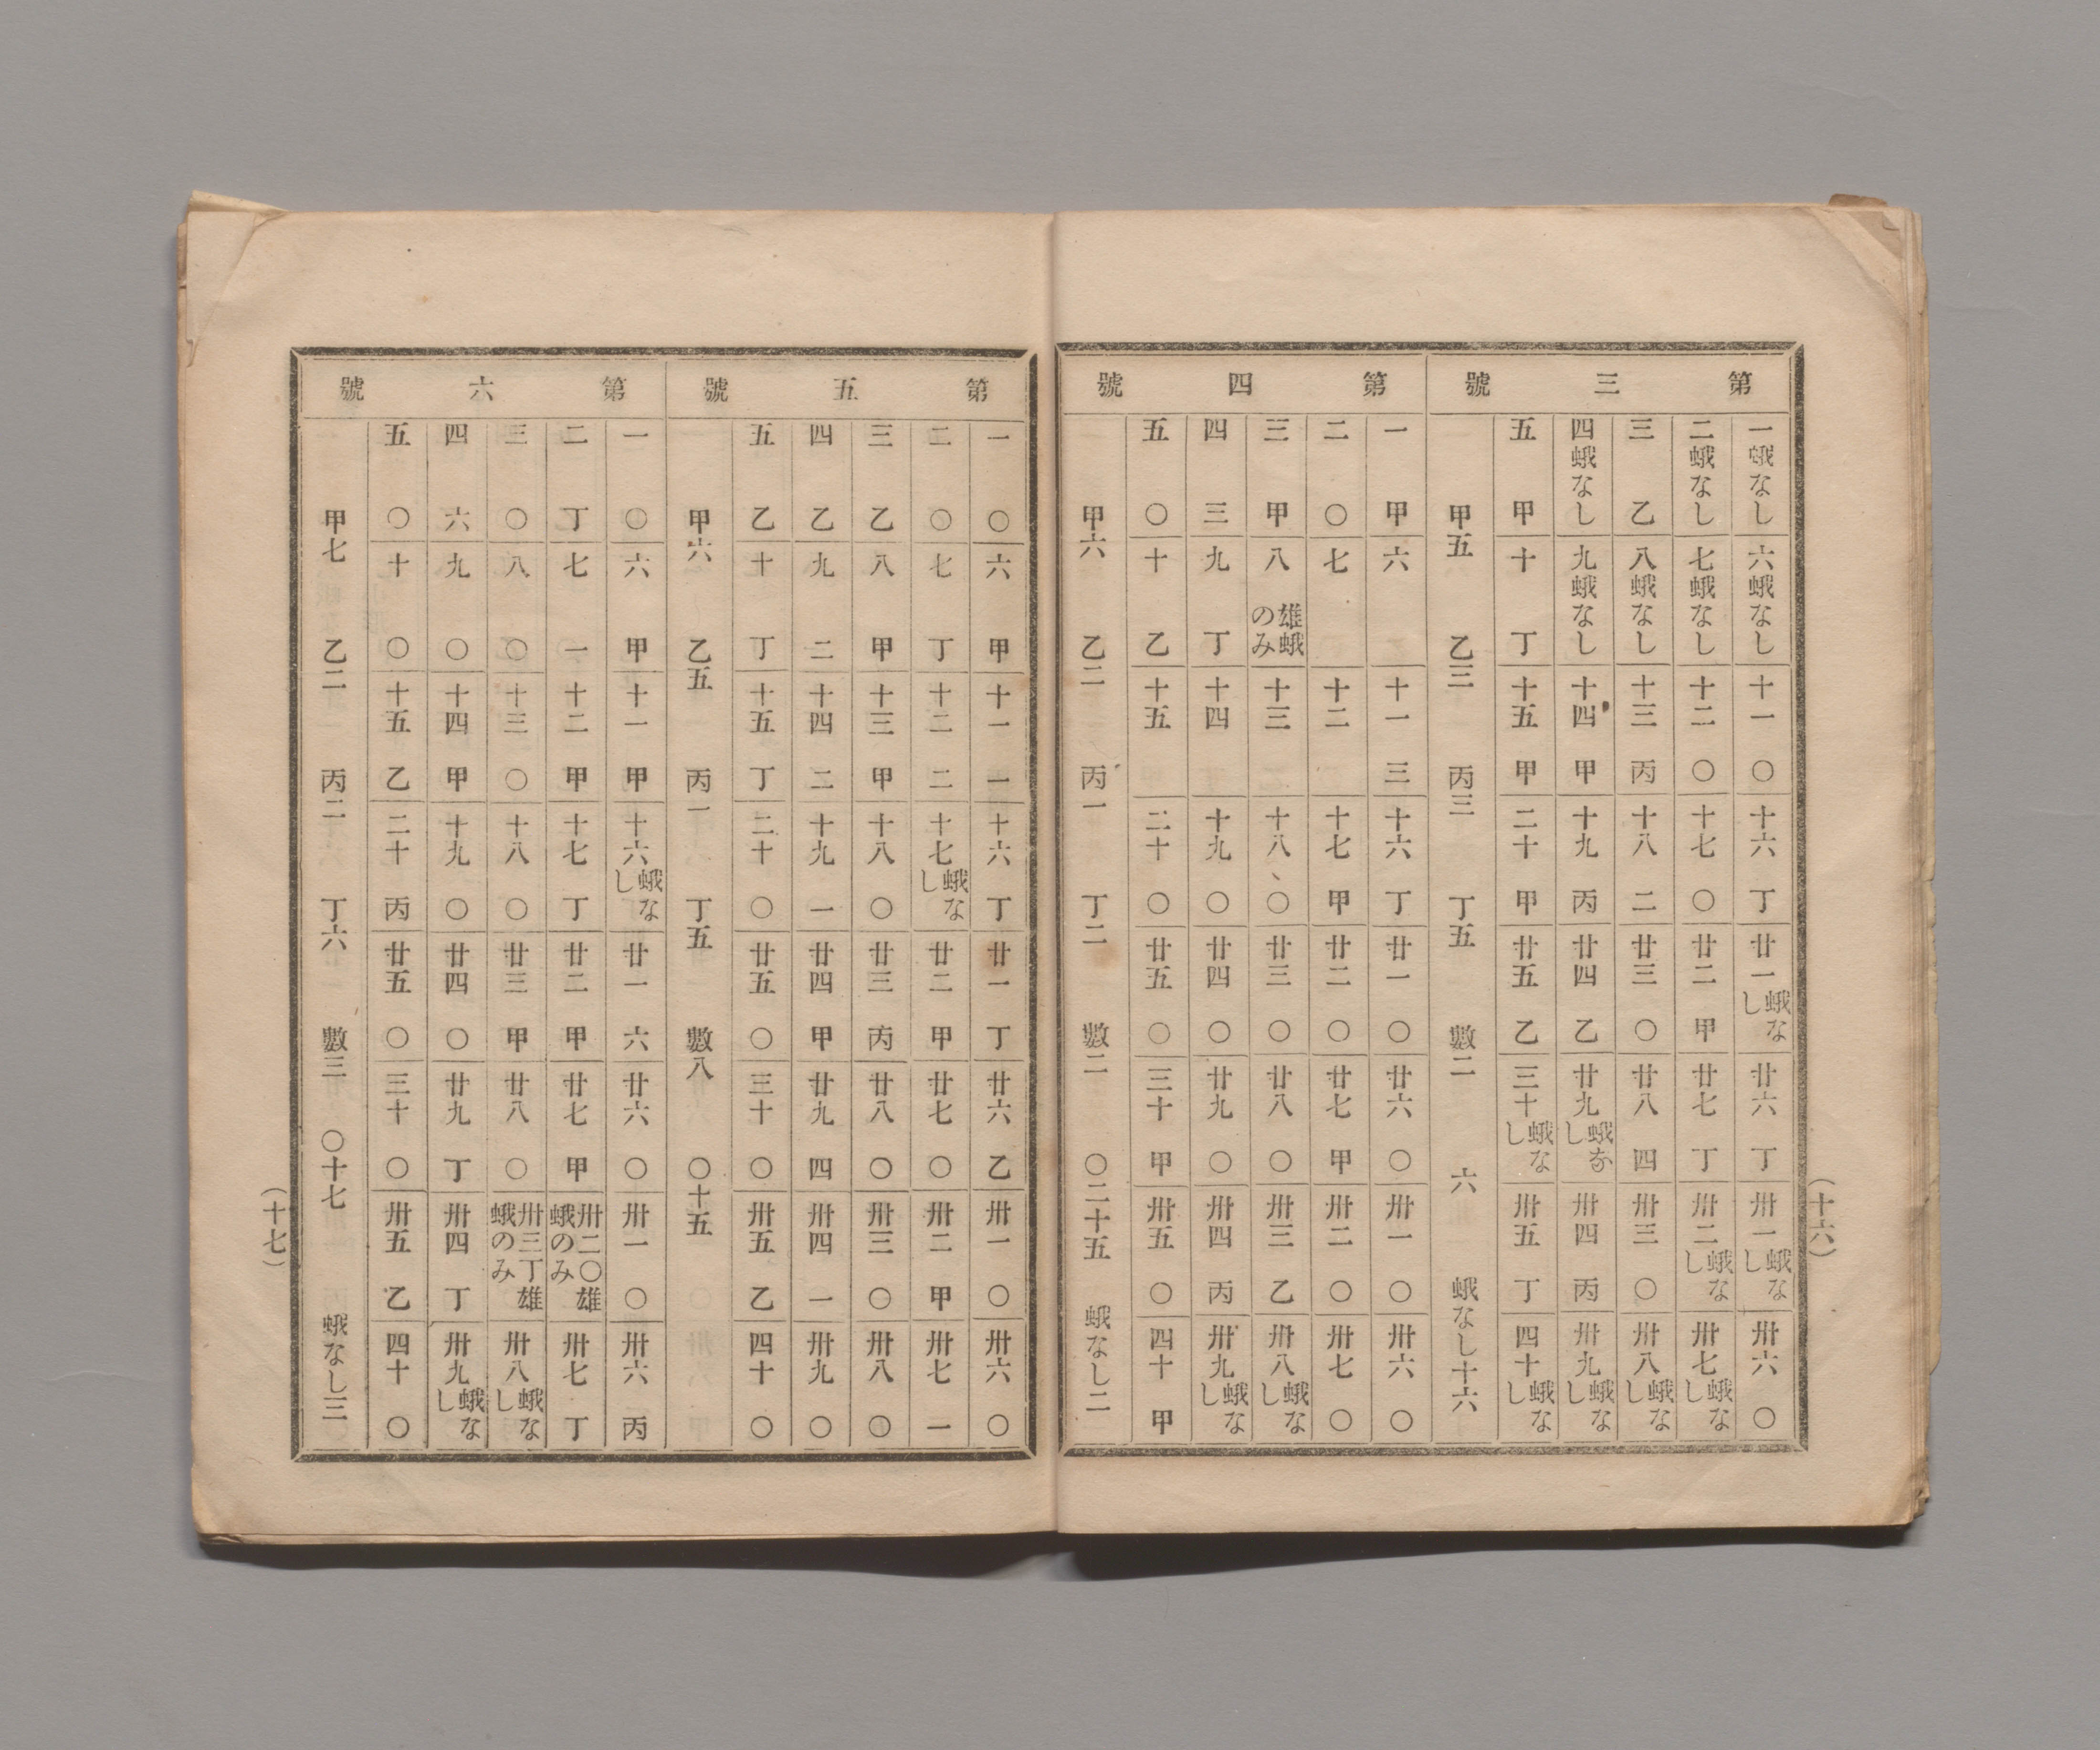 第三號
一蛾なし 六蛾なし 十一〇 十六丁 廿一蛾なし 廿六丁 卅一蛾なし 卅六〇
二蛾なし 七蛾なし 十二〇 十七〇 廿二甲 廿七丁 卅二蛾なし 卅七蛾なし
三乙 八蛾なし 十三丙 十八二 廿三〇 廿八四 卅三〇 卅八蛾なし
四蛾なし 九蛾なし 十四甲 十九丙 廿四乙 廿九蛾な し 卅四丙 卅九蛾なし
五甲 十丁 十五甲 二十甲 廿五乙 三十蛾なし 卅五丁 四十蛾なし
甲五 乙三 丙三 丁五 數二 六 蛾なし十六
第四號
一甲 六 十一三 十六丁 廿一〇 廿六〇 卅一〇 卅六〇
二〇 七 十二 十七甲 廿二〇 廿七甲 卅二〇 卅七〇
三甲 八雄蛾のみ 十三 十八〇 廿三〇 廿八〇 卅三乙 卅八蛾なし
四三 九丁 十四 十九〇 廿四〇 廿九〇 卅四丙 卅九蛾なし
五〇 十乙 十五 二十〇 廿五〇 三十甲 卅五〇 四十甲
甲六 乙二 丙一 丁二 數二 〇二十五 蛾なし二
(十六)
第五號
一〇 六甲 十一一 十六丁 廿一丁 廿六乙 卅一〇 卅六〇
二〇 七丁 十二二 十七蛾なし 廿二甲 廿七〇 卅二甲 卅七一
三乙 八甲 十三甲 十八〇 廿三丙 廿八〇 卅三〇 卅八〇
四乙 九二 十四二 十九一 廿四甲 廿九四 卅四一 卅九〇
五乙 十丁 十五丁 二十〇 廿五〇 三十〇 卅五乙 四十〇
甲六 乙五 丙一 丁五 數八 〇十五
第六號
一〇 六甲 十一甲 十六蛾なし 廿一六 廿六〇 卅一〇 卅六丙
二丁 七一 十二甲 十七丁 廿二甲 廿七甲 卅二〇雄蛾のみ 卅七丁
三〇 八〇 十三〇 十八〇 廿三甲 廿八〇 卅三丁雄蛾のみ 卅八蛾なし
四六 九〇 十四甲 十九〇 廿四〇 廿九丁 卅四丁 卅九蛾なし
五〇 十〇 十五乙 二十丙 廿五〇 三十〇 卅五乙 四十〇
甲七 乙二 丙二 丁六 數三 〇十七 蛾なし三
(十七)